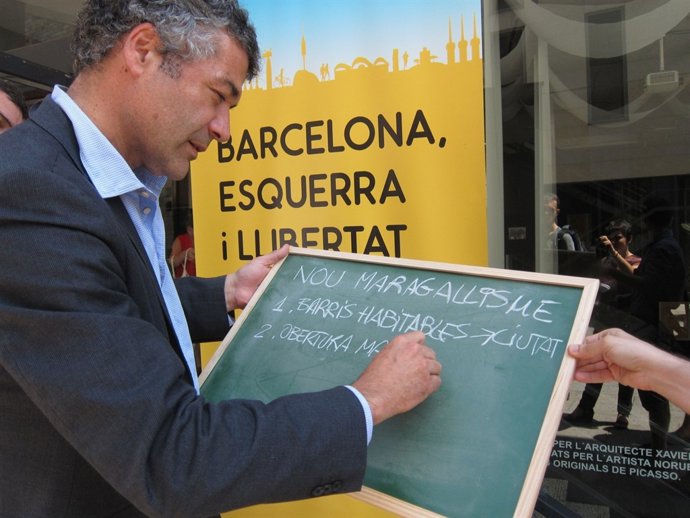 BARCELONA,
ESQUERRA
i LLIBERTAT
NOU MARAGALLISME
1. BARRIS HABITABLES → CIUTAT
2. OBERTURA
PER L'ARQUITECTE XAVIE
ATS PER L'ARTISTA NORUE
ORIGINALS DE PICASSO.